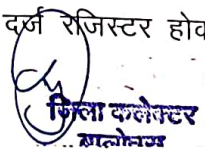 दर्ज रजिस्टर होव
जिला कलेक्टर
बालोतरा